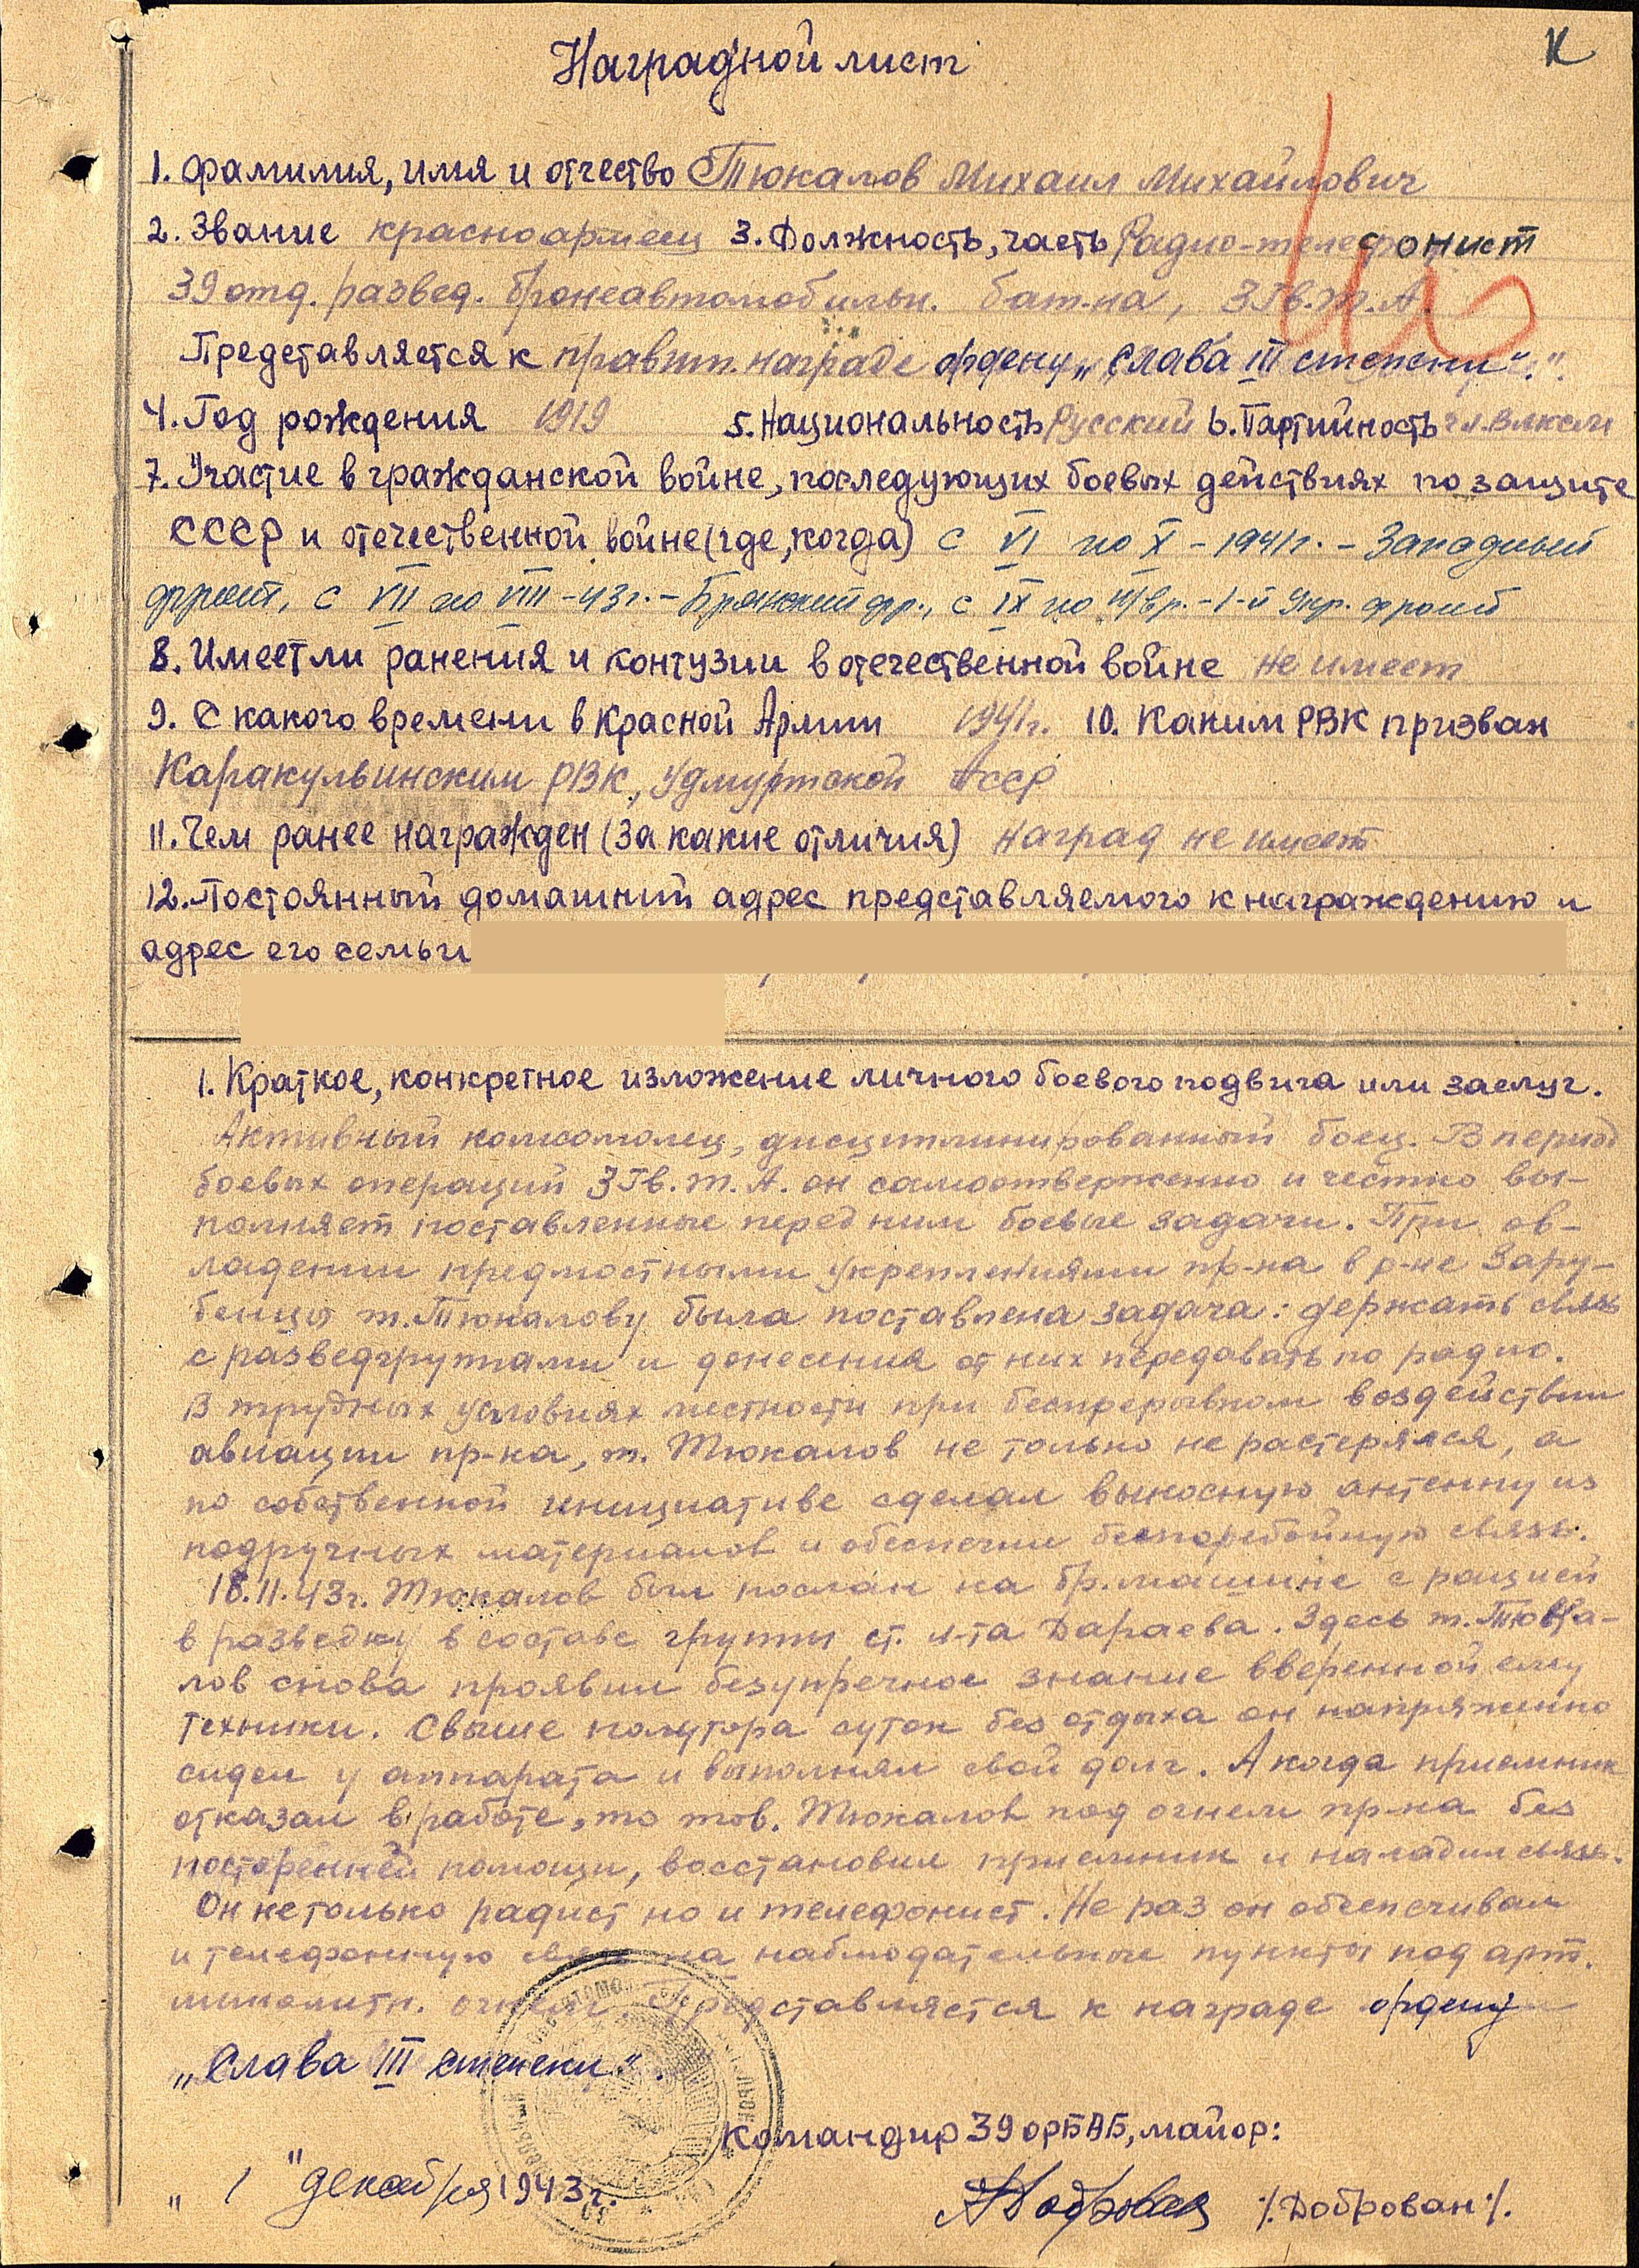 К
Наградной лист
1. Фамилия, имя и отчество Тюкалов Михаил Михайлович
2. Звание красноармеец 3. Должность, часть Радио-телефонист
39 отд. развед. бронеавтомобильн. бат-на, 3 Гв. Т. А.
Представляется к правит. награде ордену „Слава III степени“.
4. Год рождения 1919 5. Национальность Русский 6. Партийность чл. ВЛКСМ
7. Участие в гражданской войне, последующих боевых действиях по защите
СССР и отечественной войне (где, когда) с VI по X - 1941г. - Западный
фронт, с VII по VIII - 43г. - Брянский фр., с IX по н/вр. - 1-й Укр. фронт
8. Имеет ли ранения и контузии в отечественной войне не имеет
9. С какого времени в Красной Армии 1941г. 10. Каким РВК призван
Каракулинским РВК, Удмуртской АССР
11. Чем ранее награжден (за какие отличия) наград не имеет
12. Постоянный домашний адрес представляемого к награждению и
адрес его семьи
1. Краткое, конкретное изложение личного боевого подвига или заслуг.
Активный комсомолец, дисциплинированный боец. В период
боевых операций 3 Гв. т. А. он самоотверженно и честно вы-
полняет поставленные перед ним боевые задачи. При ов-
ладении предмостными укреплениями пр-ка в р-не Зару-
бенцы т. Тюкалову была поставлена задача: держать связь
с разведгруппами и донесения от них передавать по радио.
В трудных условиях местности при беспрерывном воздействии
авиации пр-ка, т. Тюкалов не только не растерялся, а
по собственной инициативе сделал выносную антенну из
подручных материалов и обеспечил бесперебойную связь.
18.11.43г. Тюкалов был послан на бр. машине с рацией
в разведку в составе группы ст. л-та Дараева. Здесь т. Тюка-
лов снова проявил безупречное знание вверенной ему
техники. Свыше полутора суток без отдыха он напряженно
сидел у аппарата и выполнял свой долг. А когда приемник
отказал в работе, то тов. Тюкалов под огнем пр-ка без
посторенней помощи, восстановил приемник и наладил связь.
Он не только радист но и телефонист. Не раз он обеспечивал
и телефонную связь на наблюдательные пункты под арт.
минометн. огнем. Представляется к награде ордену
„Слава III степени“.
Командир 39 орБАБ, майор:
„ 1 " декабря 1943г. /Доброван/.